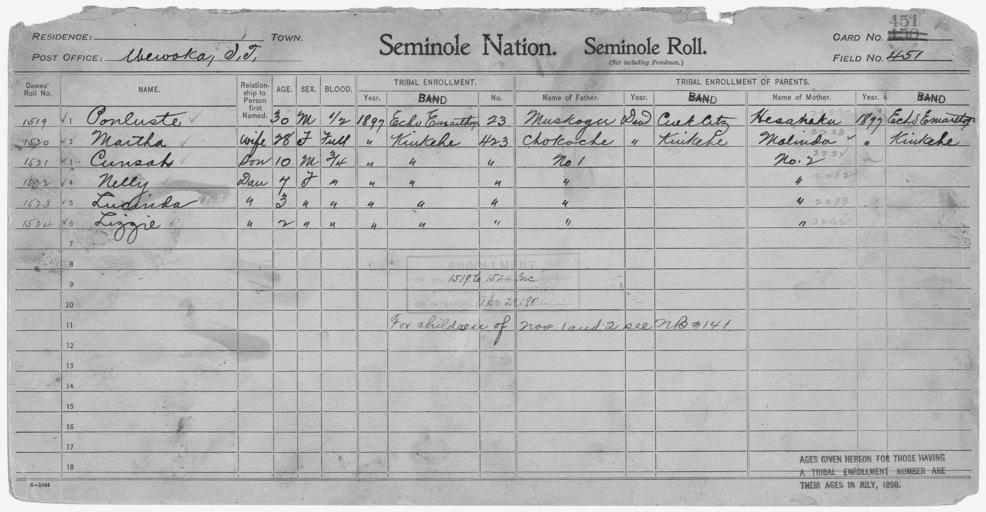 451
RESIDENCE: TOWN. Seminole Nation. Seminole Roll. CARD NO. 450
POST OFFICE: Wewoka, I.T. (Not including Freedmen.) FIELD NO. 451
Dawes' Roll No. NAME. Relationship to Person first Named. AGE. SEX. BLOOD. TRIBAL ENROLLMENT. TRIBAL ENROLLMENT OF PARENTS.
Year. BAND No. Name of Father. Year. BAND Name of Mother. Year. BAND
1519 1 Ponluste 30 M 1/2 1897 Echo Emarthoge 23 Muskogee Dead Hesahoka 1897 Echo Emarthoge
1520 2 Martha Wife 28 F Full " Kinkehe 423 Chokoche " Kinkehe Malinda 2233 " Kinkehe
1521 3 Cunsah Son 10 M 3/4 " " " No 1 No. 2
1522 4 Nelly Dau 7 F " " " " "
1523 5 Lucinda " 3 " " " " " " "
1524 6 Lizzie " 2 " " " " " " "
7
8 ENROLLMENT
9 1519 to 1524 Inc
10 OF INTERIOR Apr 2 1901
11 For children of nos 1 and 2 see NB #141
12
13
14
15
16
17
18
AGES GIVEN HEREON FOR THOSE HAVING
A TRIBAL ENROLLMENT NUMBER ARE
THEIR AGES IN JULY, 1898.